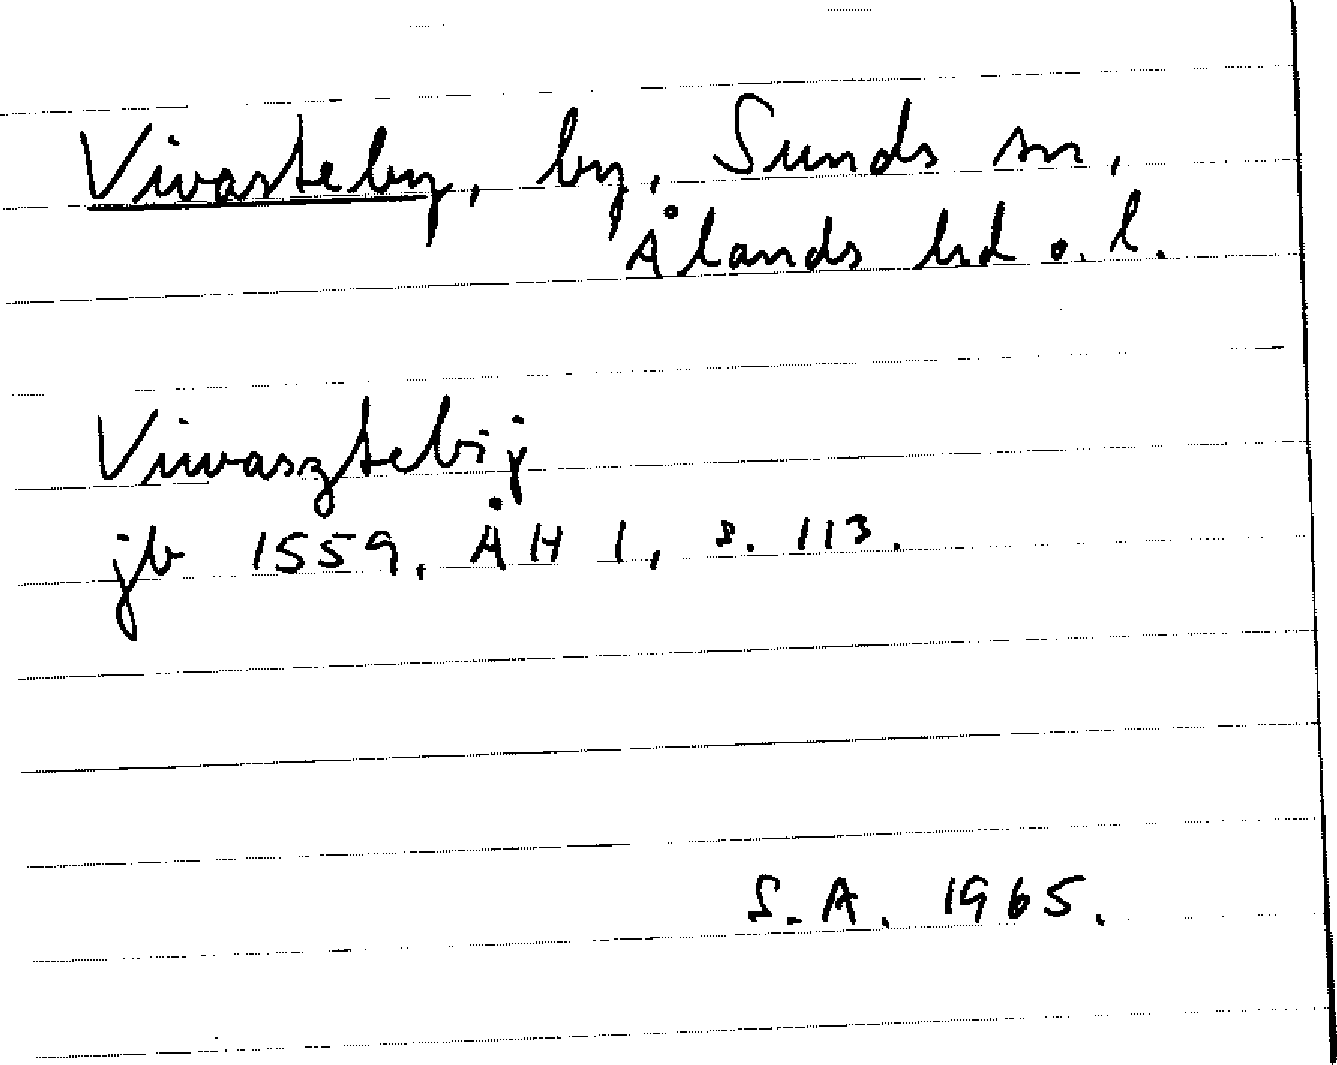 Vivasteby, by, Sunds sn,
Ålands hd o. l.
Vivvasztebij
jb 1559, ÅH 1, s. 113.
S.A. 1965.